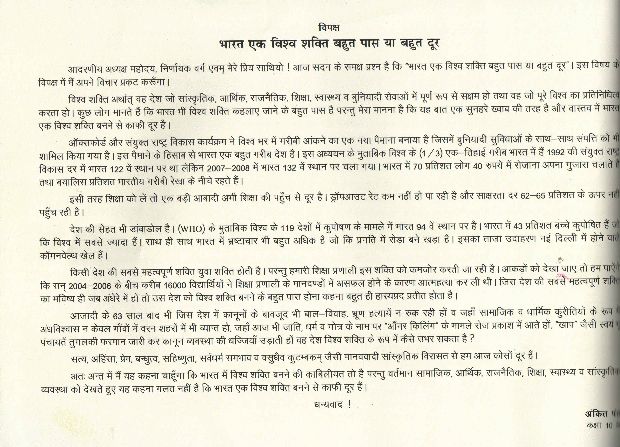 विपक्ष
भारत एक विश्व शक्ति बहुत पास या बहुत दूर
आदरणीय अध्यक्ष महोदय, निर्णायक वर्ग एवम् मेरे प्रिय साथियो ! आज सदन के समक्ष प्रश्न है कि "भारत एक विश्व शक्ति बहुत पास या बहुत दूर"। इस विषय के
विपक्ष में मैं अपने विचार प्रकट करूँगा।
विश्व शक्ति अर्थात् वह देश जो सांस्कृतिक, आर्थिक, राजनैतिक, शिक्षा, स्वास्थ्य व बुनियादी सेवाओं में पूर्ण रूप से सक्षम हो तथा वह जो पूरे विश्व का प्रतिनिधित्व
करता हो। कुछ लोग मानते हैं कि भारत भी विश्व शक्ति कहलाए जाने के बहुत पास है परन्तु मेरा मानना है कि यह बात एक सुनहरे ख्वाब की तरह है और वास्तव में भारत
एक विश्व शक्ति बनने से काफी दूर है।
ऑक्सफोर्ड और संयुक्त राष्ट्र विकास कार्यक्रम ने विश्व भर में गरीबी आंकने का एक नया पैमाना बनाया है जिसमें बुनियादी सुविधाओं के साथ-साथ संपत्ति को भी
शामिल किया गया है। इस पैमाने के हिसाब से भारत एक बहुत गरीब देश है। इस अध्ययन के मुताबिक विश्व के (1/3) एक-तिहाई गरीब भारत में हैं 1992 की संयुक्त राष्ट्र
विकास दर में भारत 122 वें स्थान पर था लेकिन 2007-2008 में भारत 132 वें स्थान पर चला गया। भारत में 70 प्रतिशत लोग 40 रुपये में रोजाना अपना गुजारा चलाते हैं
तथा बयालिस प्रतिशत भारतीय गरीबी रेखा के नीचे रहते हैं।
इसी तरह शिक्षा को ले तो एक बड़ी आबादी अभी शिक्षा की पहुँच से दूर है। ड्रॉपआउट रेट कम नहीं हो पा रही है और साक्षरता दर 62-65 प्रतिशत के ऊपर नहीं
पहुँच रही है।
देश की सेहत भी डांवाडोल है। (WHO) के मुताबिक विश्व के 119 देशों में कुपोषण के मामले में भारत 94 वें स्थान पर है। भारत में 43 प्रतिशत बच्चे कुपोषित हैं जो
कि विश्व में सबसे ज्यादा हैं। साथ ही साथ भारत में भ्रष्टाचार भी बहुत अधिक है जो कि प्रगति में रोडा बने खड़ा है। इसका ताजा उदाहरण नई दिल्ली में होने वाले
कॉमनवेल्थ खेल हैं।
किसी देश की सबसे महत्वपूर्ण शक्ति युवा शक्ति होती है। परन्तु हमारी शिक्षा प्रणाली इस शक्ति को कमजोर करती जा रही है। आकडों को देखा जाए तो हम पाऐंगे
कि सन् 2004-2006 के बीच करीब 16000 विद्यार्थियों ने शिक्षा प्रणाली के मानदण्डों में असफल होने के कारण आत्महत्या कर ली थी। जिस देश की सबसे महत्वपूर्ण शक्ति
का भविष्य ही जब अंधेरे में हो तो उस देश को विश्व शक्ति बनने के बहुत पास होना कहना बहुत ही हास्यप्रद प्रतीत होता है।
आजादी के 63 साल बाद भी जिस देश में कानूनों के बावजूद भी बाल-विवाह, भ्रूण हत्यायें न रुक रही हों व जहाँ सामाजिक व धार्मिक कुरीतियों के रूप में
अंधविश्वास न केवल गाँवों में वरन शहरों में भी व्याप्त हो, जहाँ आज भी जाति, धर्म व गोत्र के नाम पर "ऑनर किलिंग" के मामले रोज प्रकाश में आते हों, "खाप" जैसी स्वयंभू
पंचायतें तुगलकी फरमान जारी कर कानून व्यवस्था की धज्जियाँ उड़ाती हों वह देश विश्व शक्ति के रूप में कैसे उभर सकता है ?
सत्य, अहिंसा, प्रेम, बन्धुत्व, सहिष्णुता, सर्वधर्म समभाव व वसुधैव कुटम्बकम् जैसी मानववादी सांस्कृतिक विरासत से हम आज कोसों दूर हैं।
अतः अन्त में मैं यह कहना चाहूँगा कि भारत में विश्व शक्ति बनने की काबिलीयत तो है परन्तु वर्तमान सामाजिक, आर्थिक, राजनैतिक, शिक्षा, स्वास्थ्य व सांस्कृतिक
व्यवस्था को देखते हुए यह कहना गलत नहीं है कि भारत एक विश्व शक्ति बनने से काफी दूर है।
धन्यवाद !
अंकित
कक्षा 10